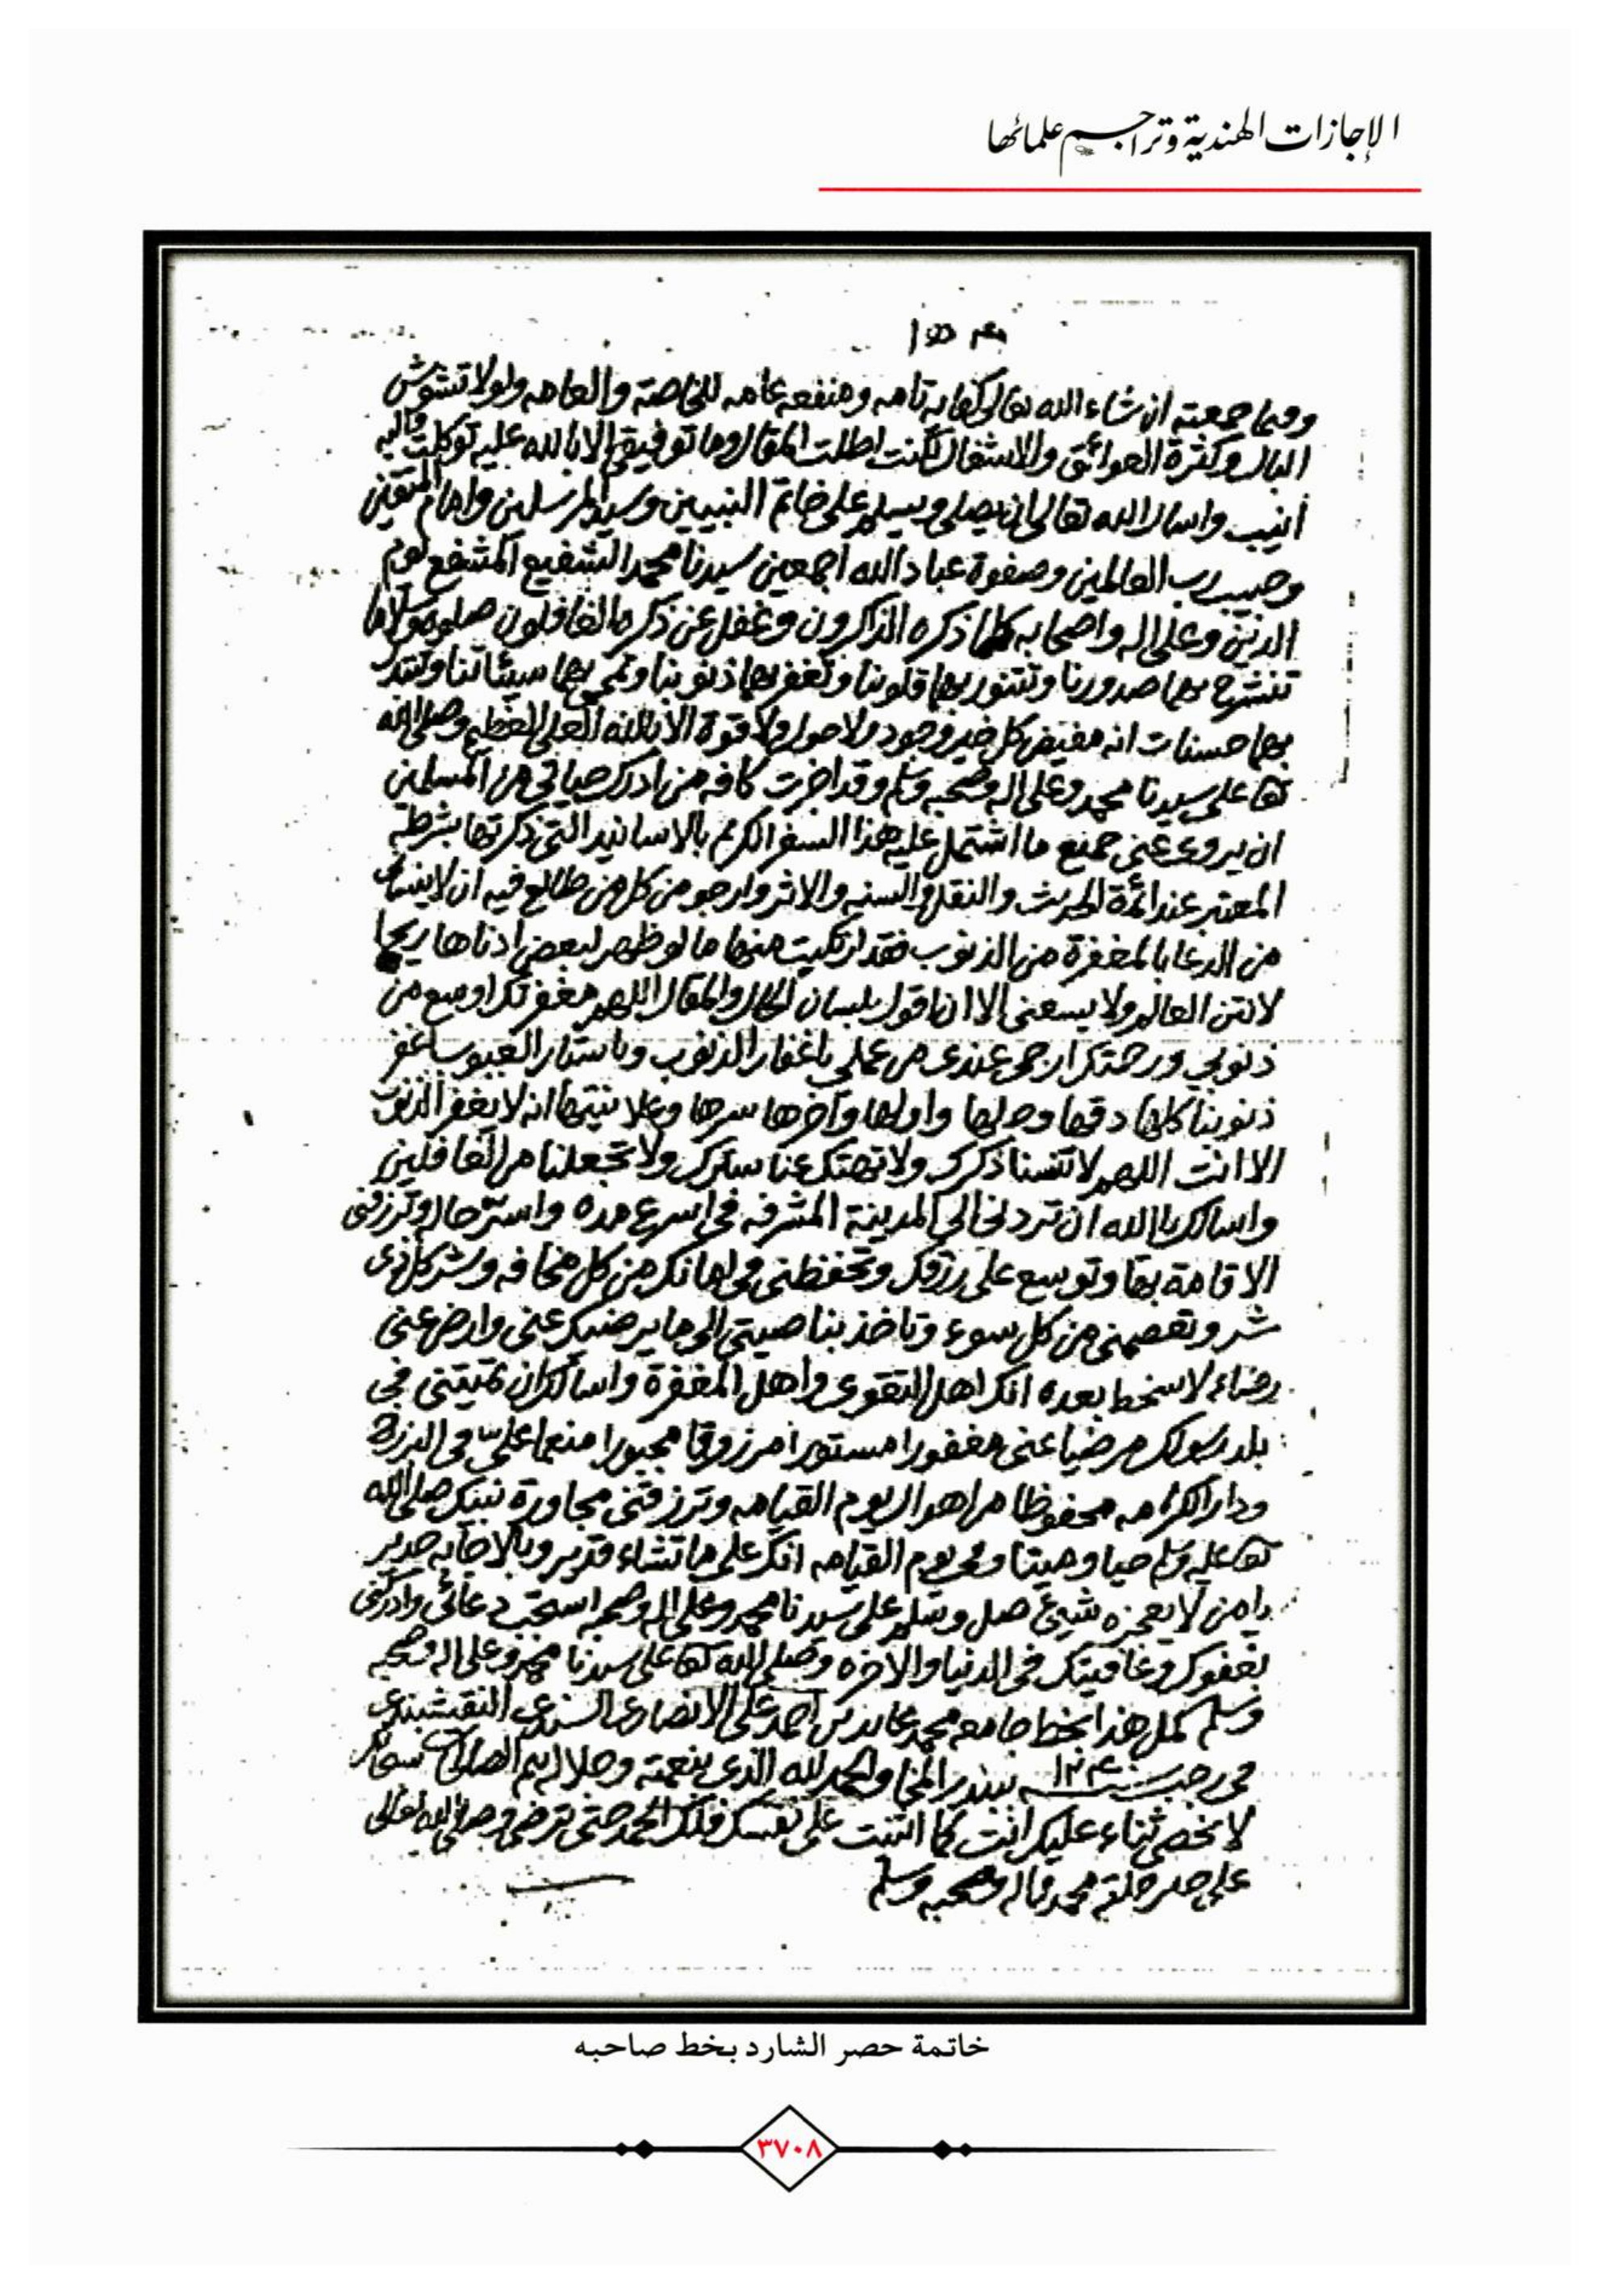 الإجازات الهندية وتراجم علمائها
وفيما جمعته ان شاء الله تعالى كفاية تامه ومنفعه عامه للخاصة والعامه ولولا تشوش
البال وكثرة العوائق والاشغال لكنت اطلت المقال وما توفيقي الا بالله عليه توكلت واليه
أنيب واسال الله تعالى ان يصلي ويسلم على خاتم النبيين وسيد المرسلين وامام المتقين
وحبيب رب العالمين وصفوة عباد الله اجمعين سيدنا محمد الشفيع المشفع يوم
الدين وعلى اله واصحابه كلما ذكره الذاكرون وغفل عن ذكره الغافلون صلوة وسلاما
تنشرح بها صدورنا وتتنور بها قلوبنا وتغفر بها ذنوبنا وتمحى بها سيئاتنا وتبدل
بها حسنات انه مفيض كل خير وجود ولا حول ولا قوة الا بالله العلي العظيم وصلى الله
تعا على سيدنا محمد وعلى اله وصحبه وسلم وقد اجزت كافه من ادرك حياتي من المسلمين
ان يروى عني جميع ما اشتمل عليه هذا السفر الكريم بالاسانيد التي ذكرتها بشرطه
المعتبر عند ائمة الحديث والنقل والسنه والاثر وارجو من كل من طالع فيه ان لا ينساني
من الدعا بالمغفرة من الذنوب فقد ارتكبت منها ما لو ظهر لبعض ادناها ريحا
لانتن العالم ولا يسعني الا ان اقول بلسان الحال والمقال اللهم مغفرتك اوسع من
ذنوبي ورحمتك ارجى عندي من عملي يا غفار الذنوب ويا ستار العيوب اغفر
ذنوبنا كلها دقها وجلها واولها وآخرها سرها وعلانيتها انه لا يغفر الذنوب
الا انت اللهم لا تنسنا ذكرك ولا تهتك عنا سترك ولا تجعلنا من الغافلين
واسالك يا الله ان تردني الى المدينة المشرفه في اسرع مده واستر حال وترزقني
الاقامة بها وتوسع علي رزقك وتحفظني في امانك من كل مخافه وشر كل ذى
شر وتعصمني من كل سوء وتاخذ بناصيتي الى ما يرضيك عني وارض عني
رضاء لا سخط بعده انك اهل التقوى واهل المغفرة واسالك ان تميتني في
بلد رسولك مرضيا عني مغفورا مستورا مرزوقا مجبورا منعما علي في البرزخ
ودار الكرامه محفوظا من اهوال يوم القيامه وترزقني مجاورة نبيك صلى الله
تعا عليه وسلم حيا وميتا وفي يوم القيامه انك على ما تشاء قدير وبالاجابه جدير
يامن لا يعجزه شيئ صل وسلم على سيدنا محمد وعلى اله وصحبه استجب دعائي وادركني
بعفوك وعافيتك في الدنيا والاخره وصلى الله تعا على سيدنا محمد وعلى اله وصحبه
وسلم كمل هذا بخط جامعه محمد عابد بن احمد علي الانصاري السندي النقشبندي
في رجب سنة ١٢٤٠ ببندر المخا والحمد لله الذي بنعمته وجلاله تتم الصالحات سبحانك
لا نحصي ثناء عليك انت كما اثنيت على نفسك فلك الحمد حتى ترضى وصلى الله تعالى
على خير خلقه محمد واله وصحبه وسلم
خاتمة حصر الشارد بخط صاحبه
٣٧٠٨